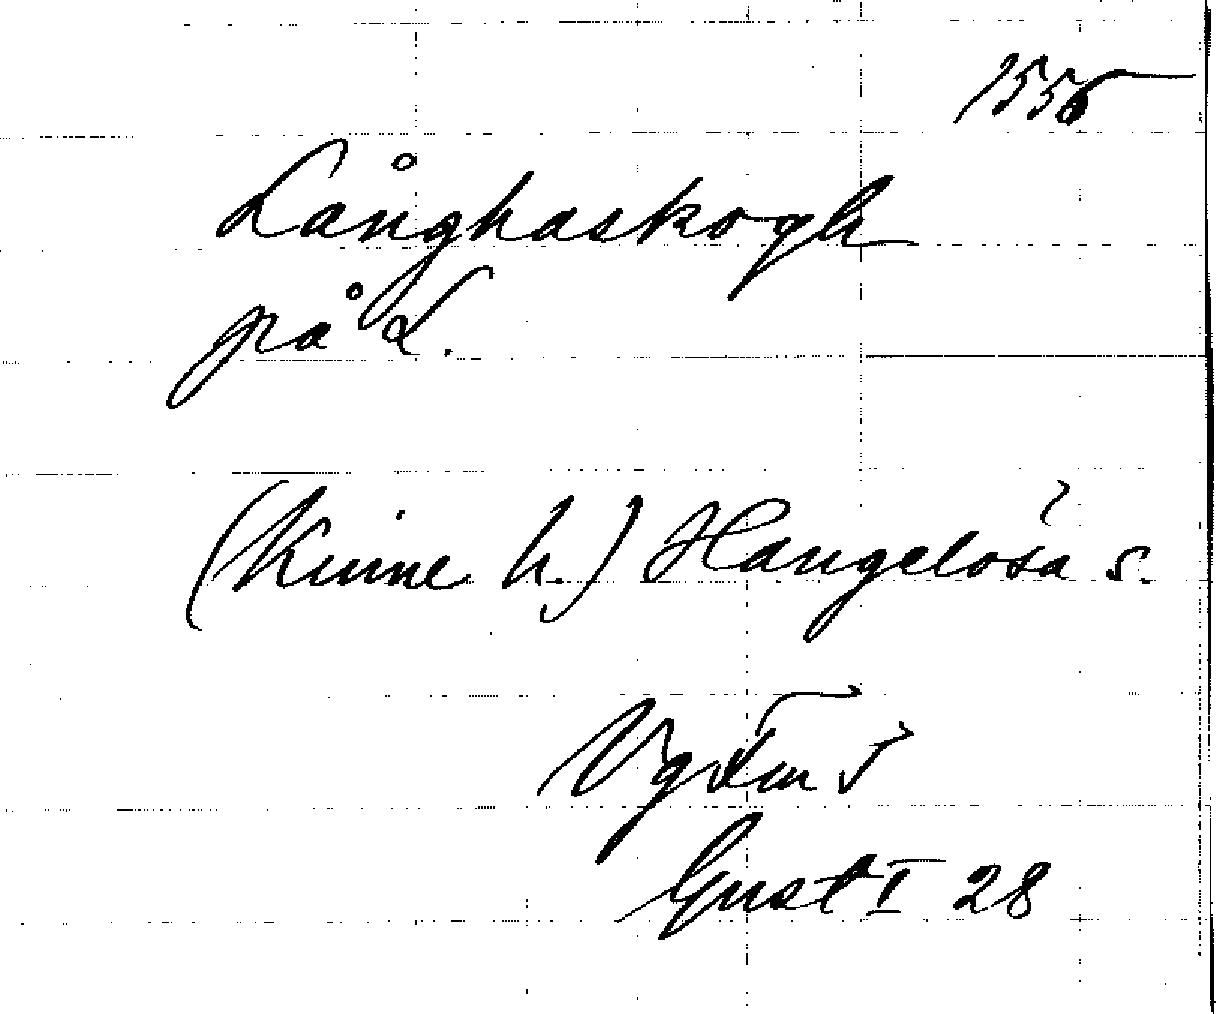 1556
Långhaskogh
på L.
(Kinne h.) Hangelösa s.
Vg Fm 5
Gust I 28